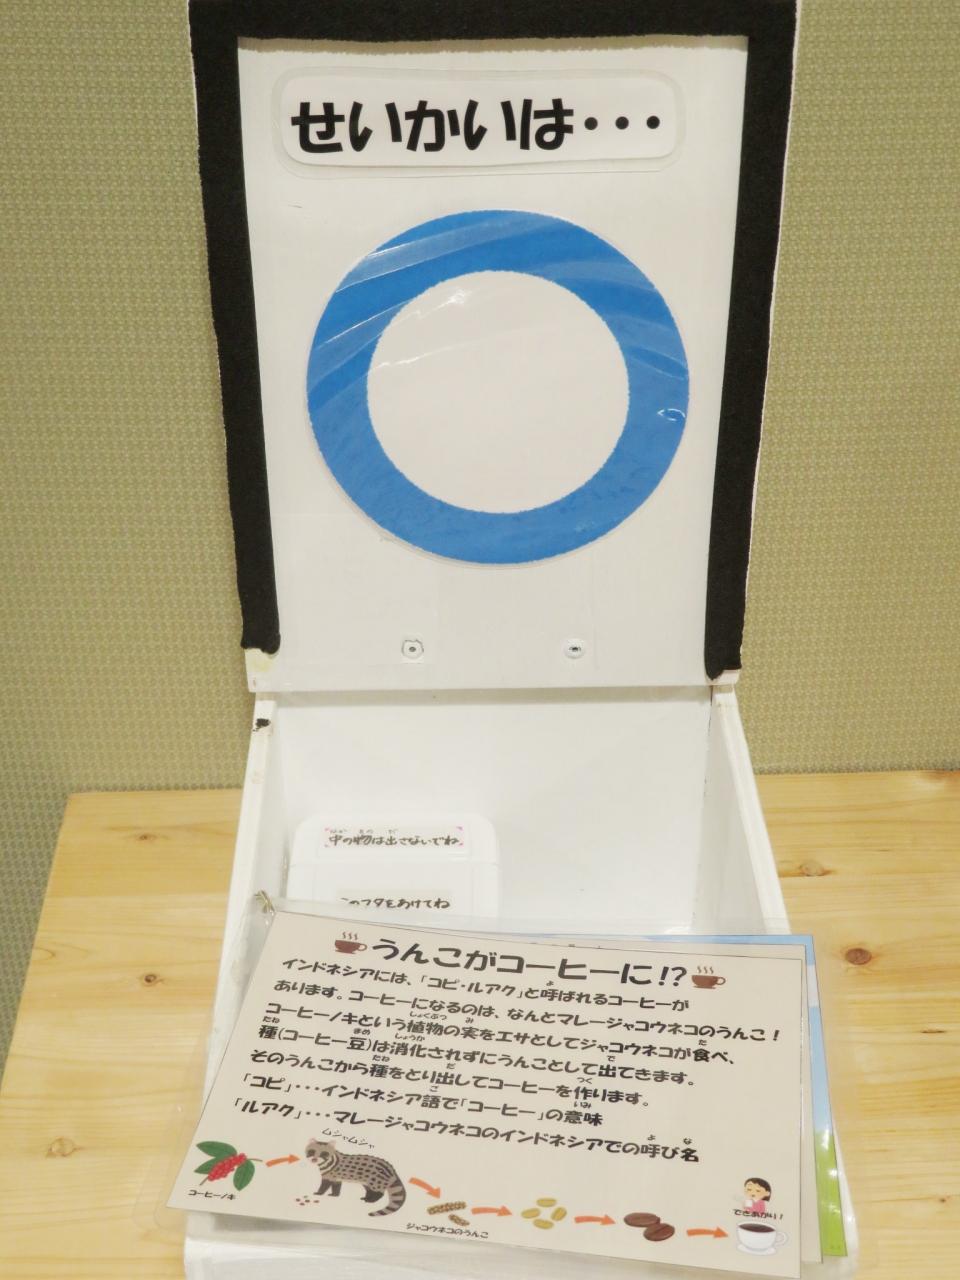 せいかいは・・・
中の物は出さないでね
このフタをあけてね
うんこがコーヒーに!?
インドネシアには、「コピ・ルアク」と呼ばれるコーヒーが
あります。コーヒーになるのは、なんとマレージャコウネコのうんこ!
コーヒーノキという植物の実をエサとしてジャコウネコが食べ、
種(コーヒー豆)は消化されずにうんことして出てきます。
そのうんこから種をとり出してコーヒーを作ります。
「コピ」・・・インドネシア語で「コーヒー」の意味
「ルアク」・・・マレージャコウネコのインドネシアでの呼び名
ムシャムシャ
コーヒーノキ
ジャコウネコのうんこ
できあがり!